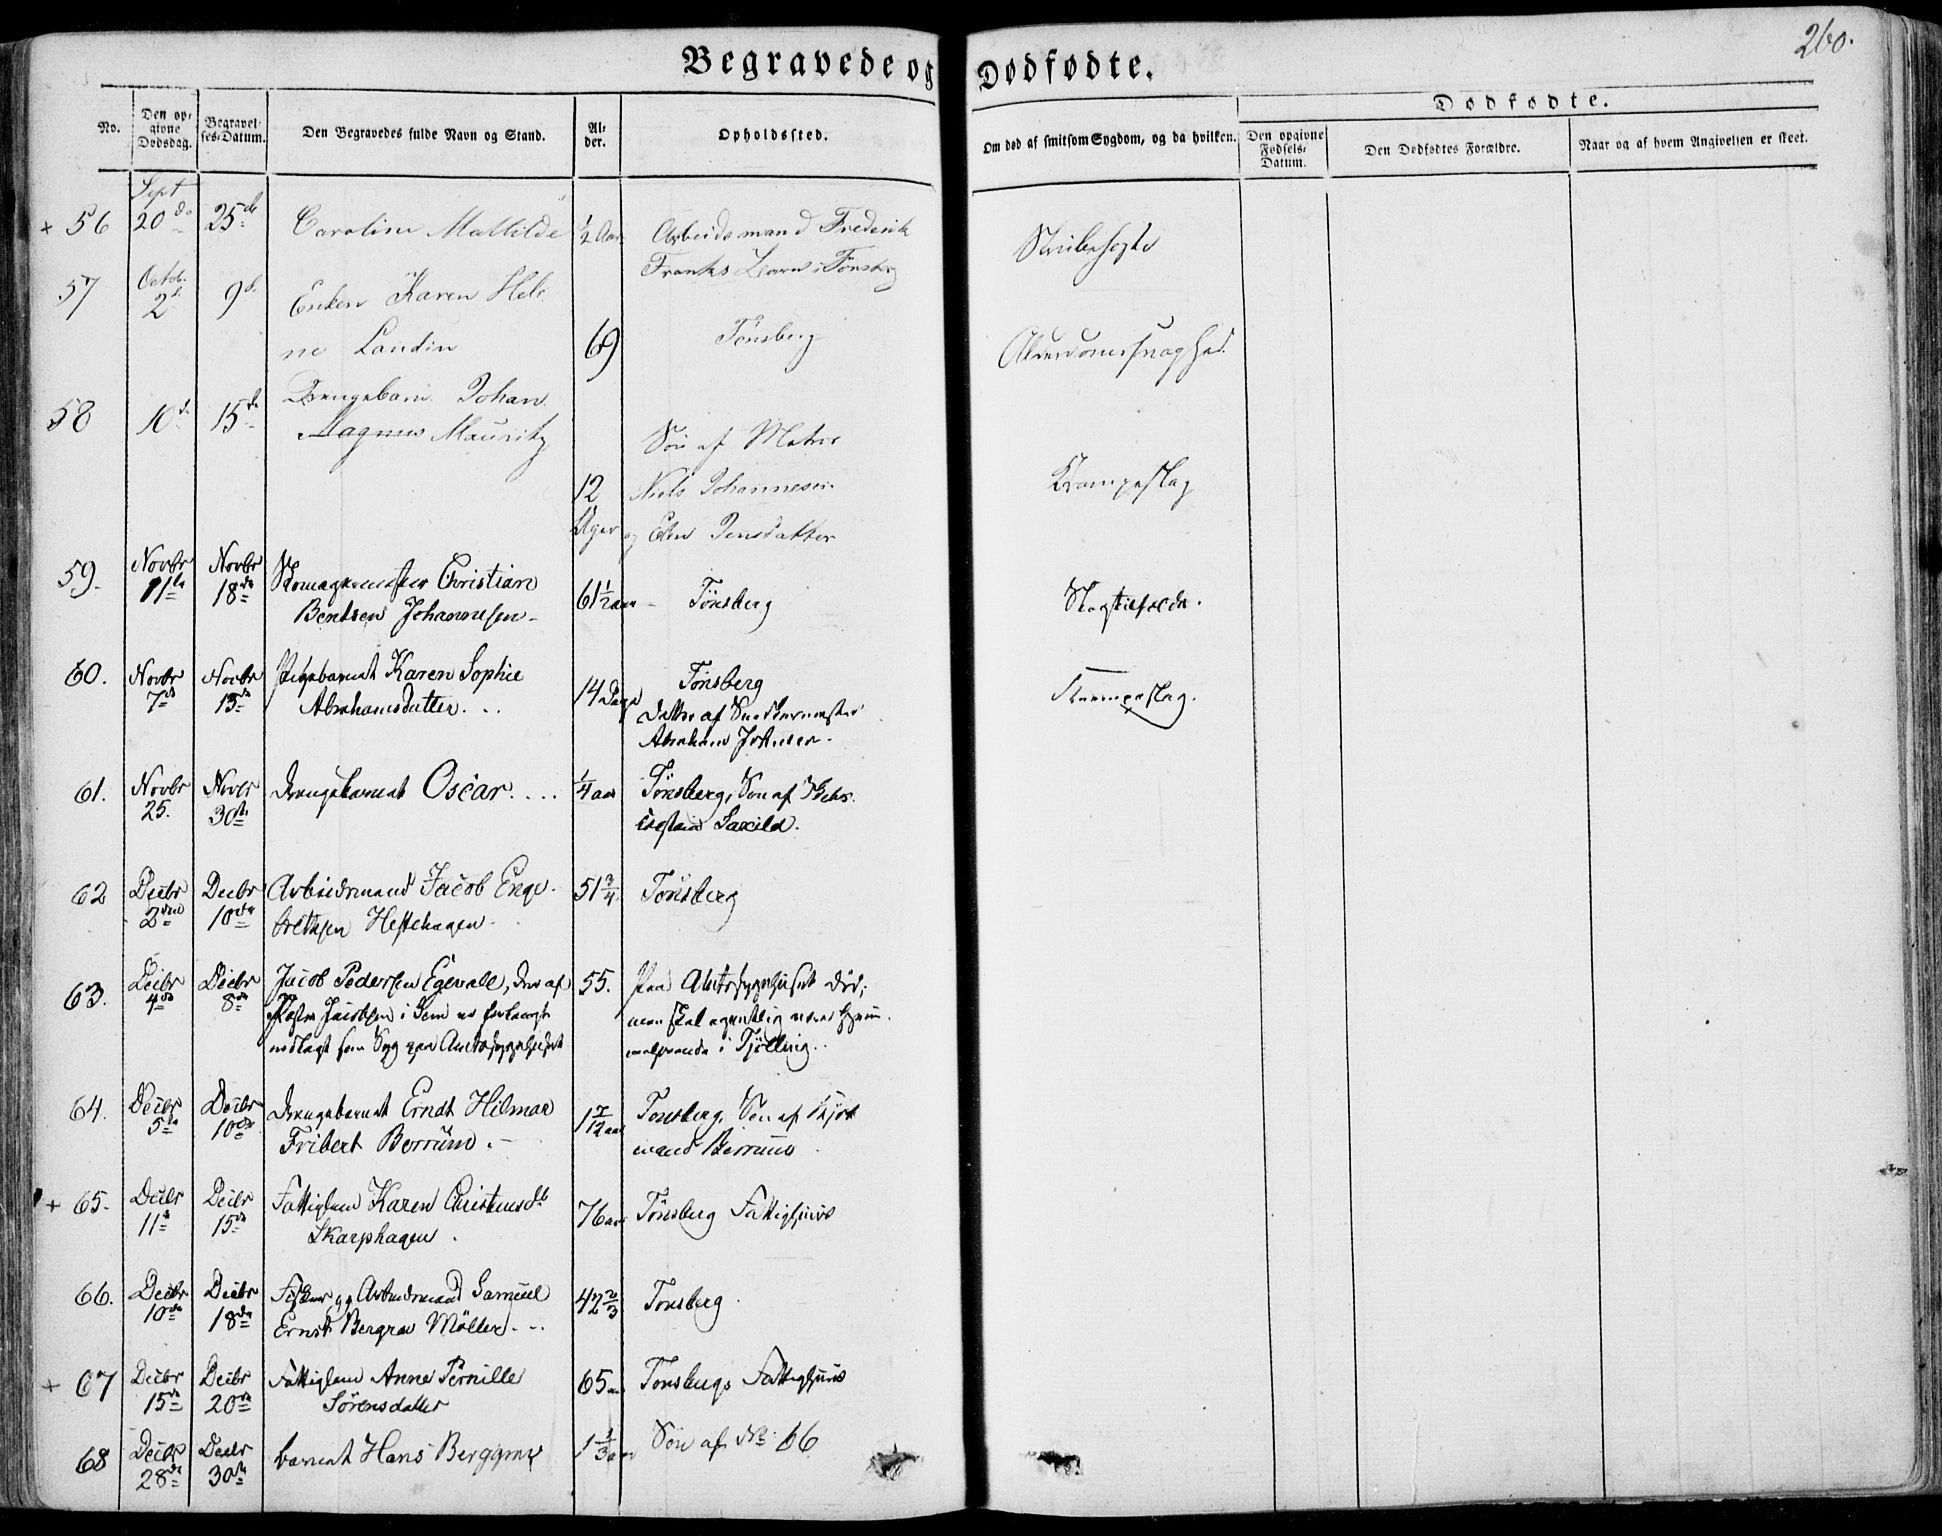 260.
Begravede og Dødfødte.
No.
Den opgivne Dødsdag.
Begravelses-Datum.
Den Begravedes fulde Navn og Stand.
Alder.
Opholdssted.
Om død af smitsom Sygdom, og da hvilken.
Dødfødte.
Den opgivne Fødsels-Datum.
Den Dødfødtes Forældre.
Naar og af hvem Angivelsen er skeet.
+ 56 Sept 20de 25de Caroline Mathilde ½ Aar Arbeidsmand Frederik
Franks Barn i Tønsberg Strubehoste
57 Octob. 2d. 9d. Enken Karen Hele
ne Landin 69 Tønsberg Alderdomssvaghed.
58 10d. 15de Drengebarn Johan
Magnus Mauritz Søn af Matros
12 Niels Johannesen Krampeslag
Uger og Elen Jensdatter
59. Novbr 11te Novbr 18de Skomagermester Christian
Bentsen Johannesen 61½ aar Tønsberg Slagtilfælde.
60. Novbr 7de Novbr 13de Pigebarnet Karen Sophie
Abrahamsdatter. .. 14 Dage Tønsberg
Datter af Snedkermester
Abraham Krampeslag.
61. Novbr 25. Novbr 30te Drengebarnet Oscar. ... ¼ aar Tønsberg, Søn af
Saxild.
62 Decbr 2den Decbr 10de Arbeidsmand Jacob Enge
bretsen Hestehagen 51¾ Tønsberg
63. Decbr 4de Decbr 8de Jacob Pedersen Egevall, der af
Jacobsen i Sem er forlangt
indlagt som Syg paa Amtssygehuset 55. Paa Amtssygehuset død;
men skal egentlig være Hjem
i Tjølling.
64. Decbr 5te Decbr 10de Drengebarnet Erndt Hilmar
Fribert Borrum. 1 7/12 aar Tønsberg, Søn af Kjøb
mand Borrum
+ 65. Decbr 11te Decbr 15de Fattiglem Karen Christensdt
Skarphagen. 76 aar Tønsberg Fattighuus
66. Decbr 10de Decbr 18de Fisker og Arbeidsmand Samuel
Ernst Bergrav Møller. .. 42⅔ Tønsberg
+ 67 Decbr 15de Decbr 20de Fattiglem Anne Pernille
Sørensdatter 65 aar Tønsbergs Fattighuus
68 Decbr 28de Decbr 30te barnet Hans Berggrav 1⅓ aar Søn af No 66